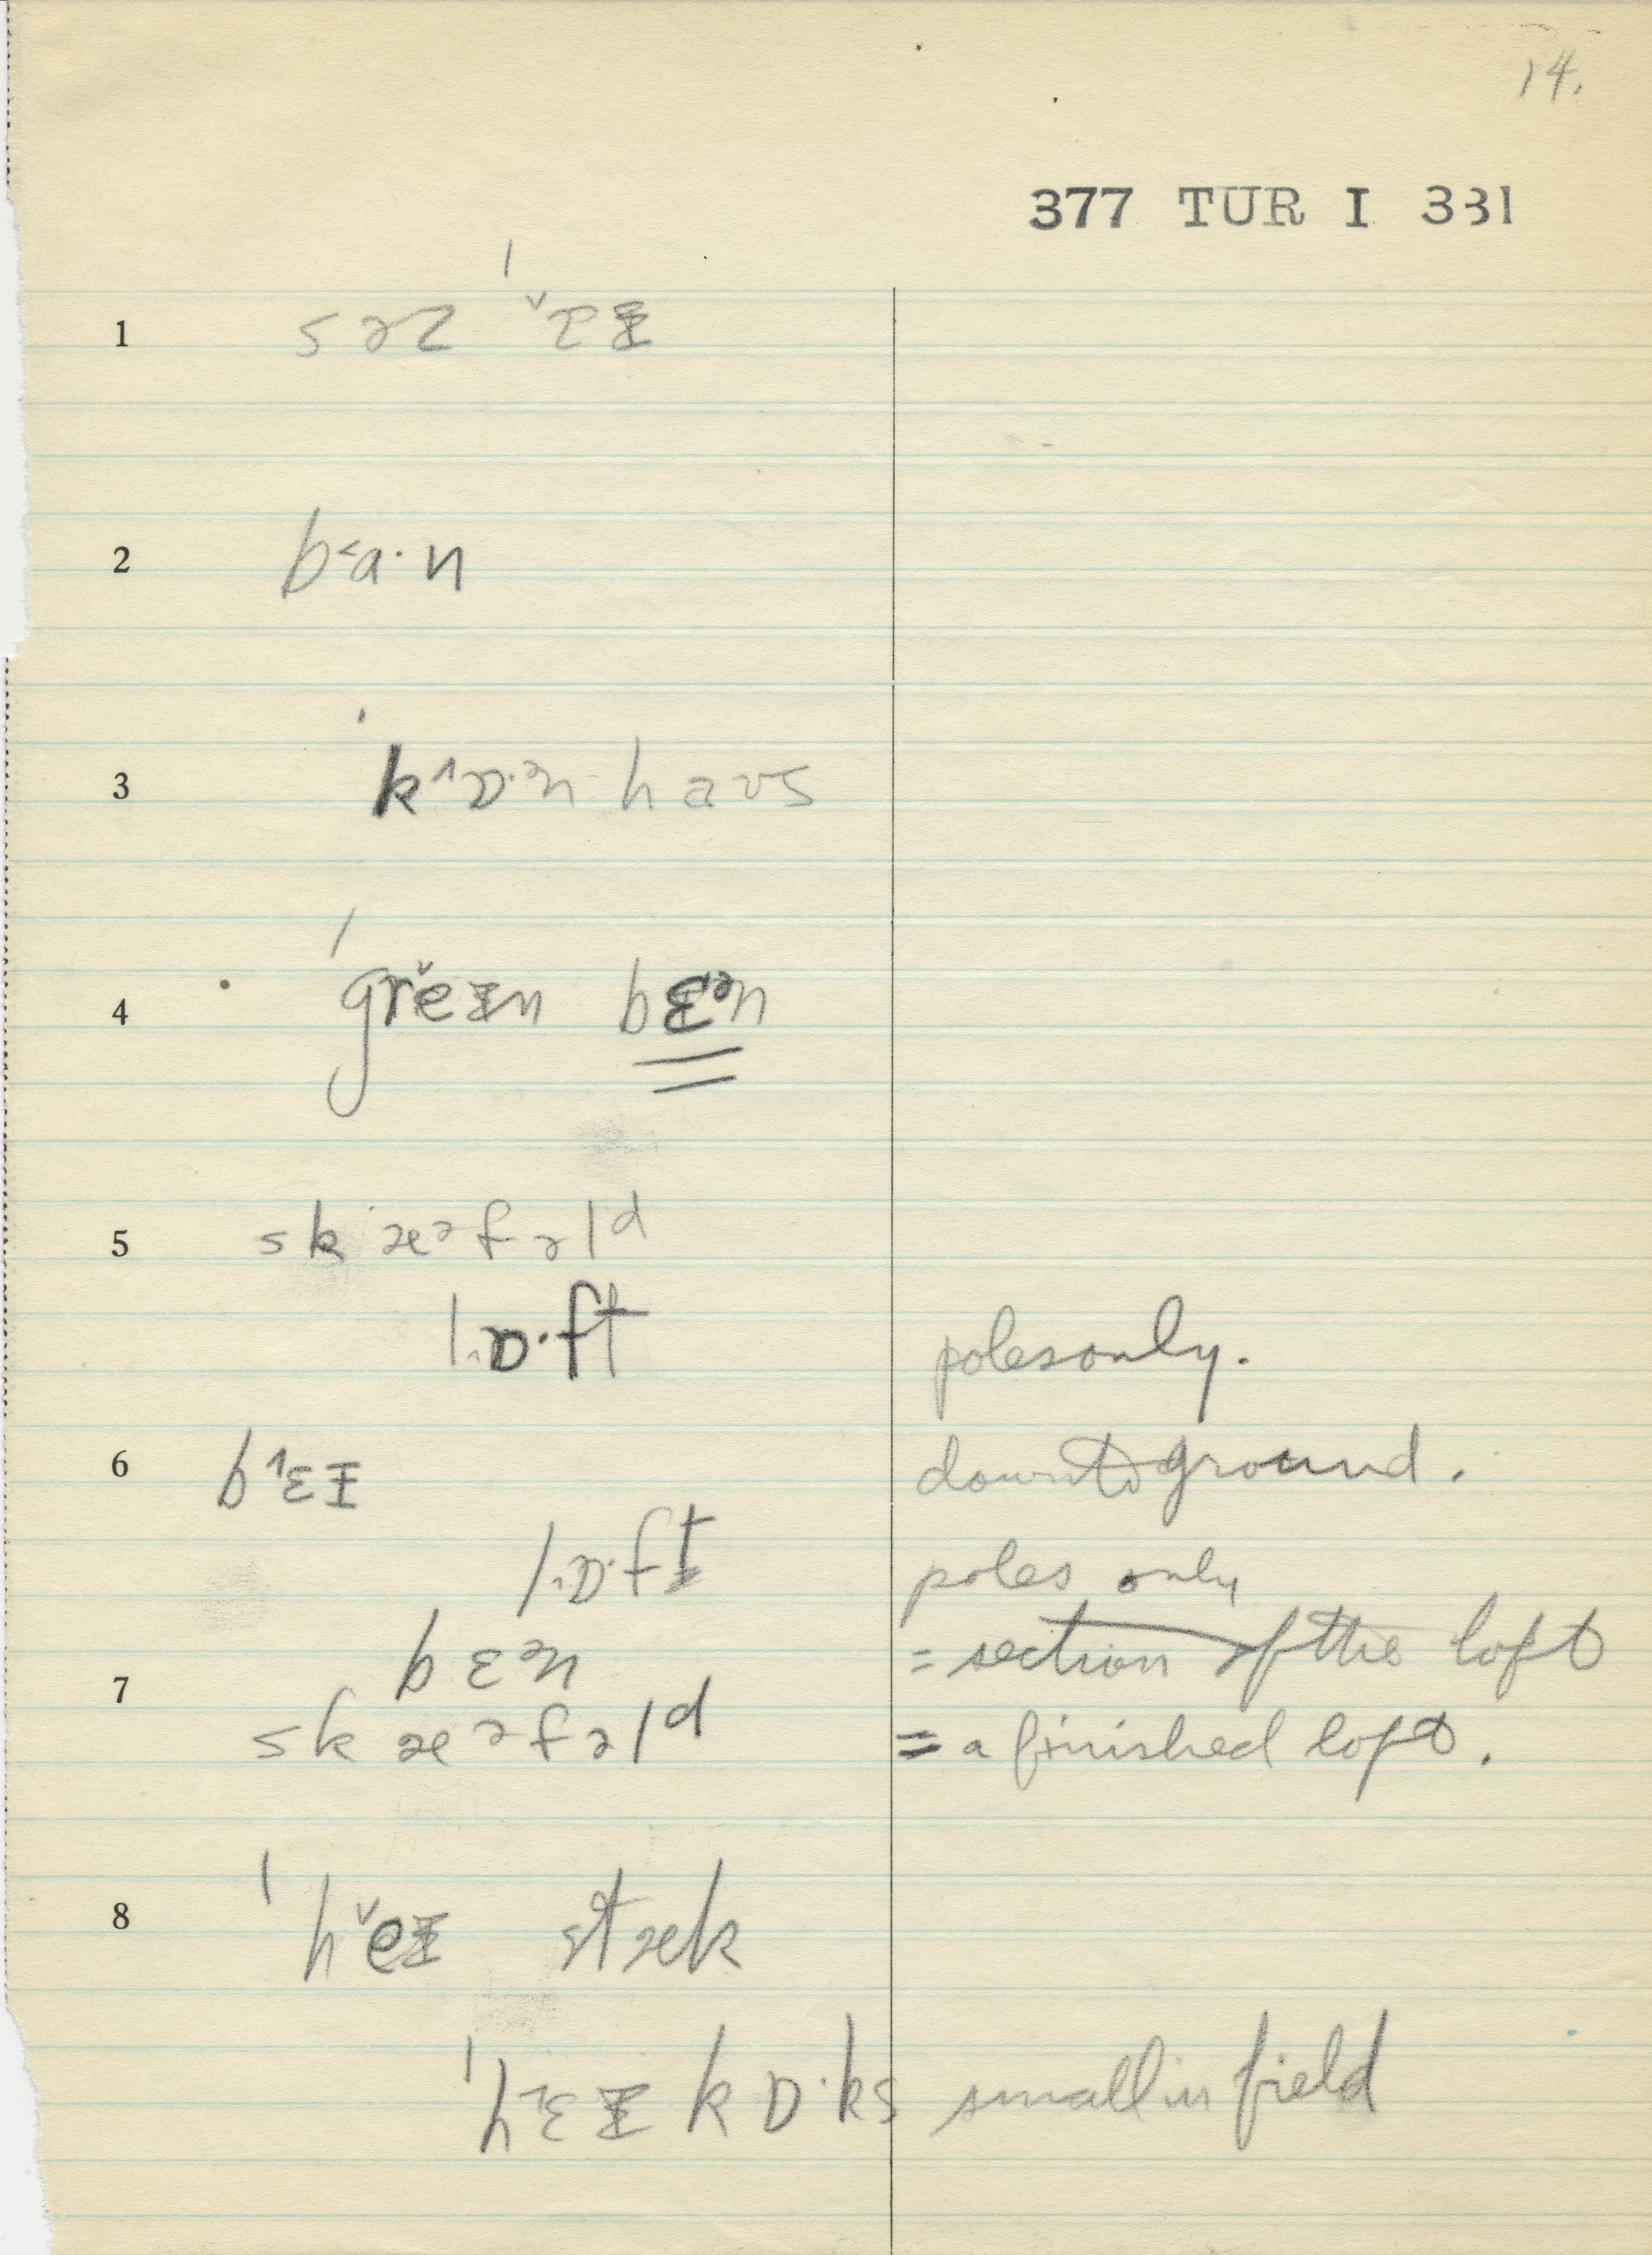 14.
377 TUR I 331
1
2 b˂a·n
3 ˈk^ɒ·ᵊn haʊs
4 ˈgrěɪn bɛᵊn
5 skæᵊfəlᵈ
lɒ·ft polesonly.
6 b˄ɛɪ down to ground.
lɒ·ft poles only
7 bɛᵊn = section of the loft
skæᵊfəlᵈ = a finished loft.
8 ˈhěɪ stæk
ˈh˄ɛɪ kɒ·ks small in field